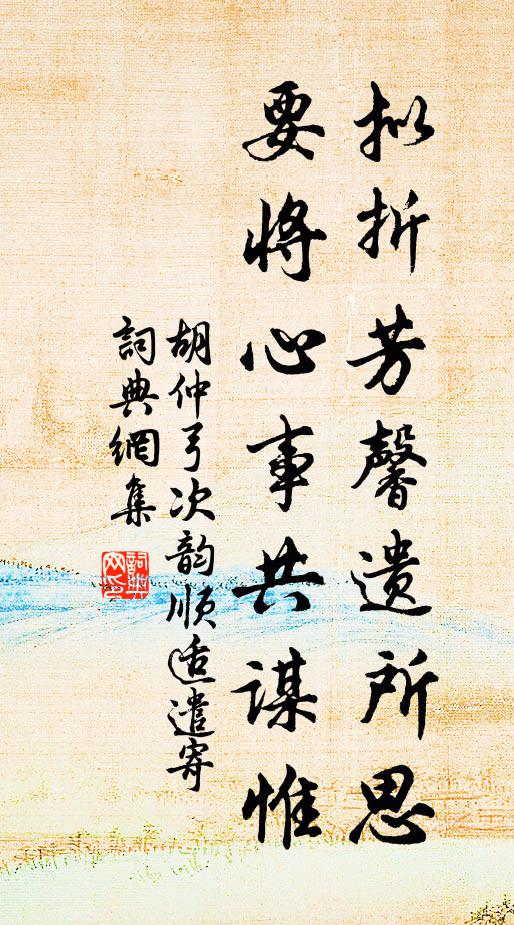 拟折芳馨遗所思
要将心事共谋惟
胡仲弓次韵顺适遣寄
詞典網集